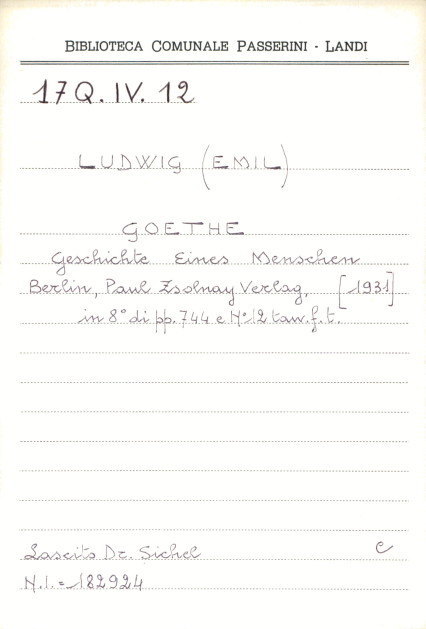 BIBLIOTECA COMUNALE PASSERINI - LANDI
17 Q. IV. 12
LUDWIG (EMIL)
GOETHE
Geschichte Eines Menschen
Berlin, Paul Zsolnay Verlag, [1931]
in 8° di pp. 744 e N° 12 tav. f. t.
Lascito Dr. Sichel e
N.I. = 182924